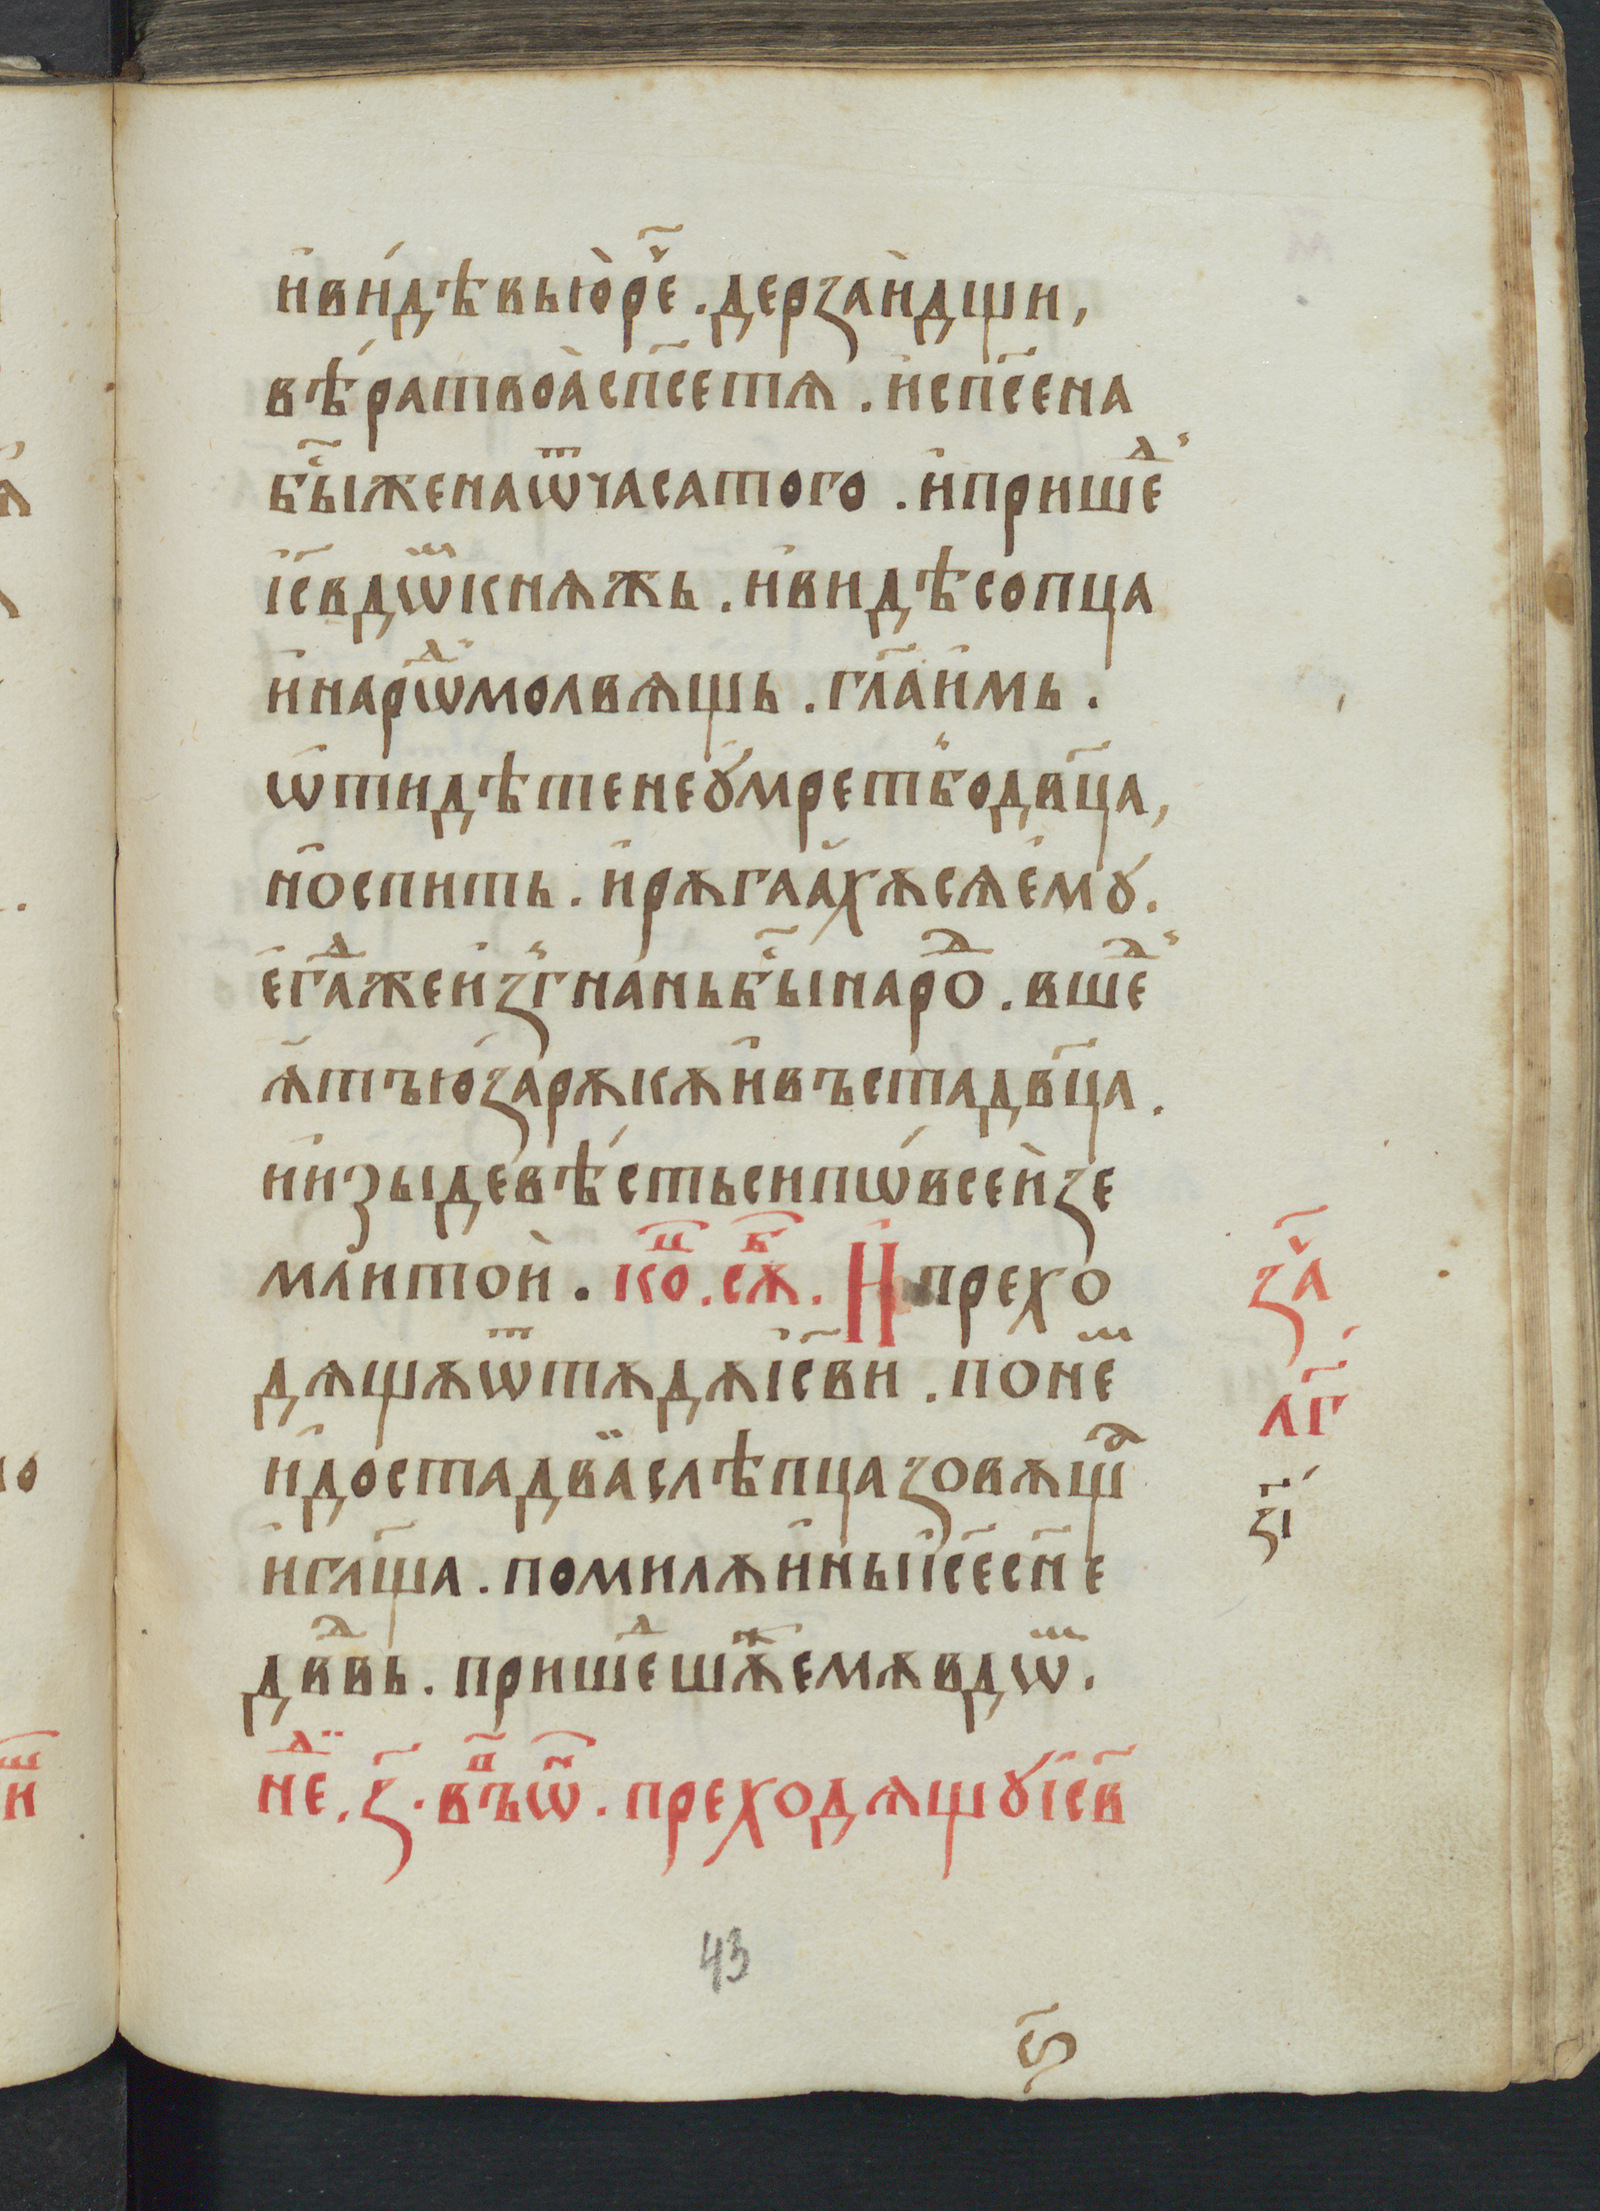 и҆ви́дѣвью̀рече҃ . дерза̀и҆дщи ,
вѣ́ратвоа̀сп҃сетѧ . и҆сп҃сена
бы҃сженаѿчасатого . и҆прише́ⷣ
і҆с҃вдѡⷨкнѧжь . и҆видѣсопца
и҆нарѡⷣмолвѧщь . гл҃аи҆мь .
ѿтидѣтенеꙋ҆мретꙿбодв҃ца ,
но҆спить . и҆рѫгаа҆хѫсѧе҆мꙋ .
е҆гдⷶжеи҆зꙿгна́ньбы҃снароⷣ . вшеⷣ
ѧ҆тъю҆зарѫкѫи҆въстадв҃ца .
и҆и҆зы́девѣ́стьсипѡ́всеи҆зе
млѝтоѝ . коⷰ҇ . сѫⷠ . И҆прехо
дѧщѫѿтѫдѫі҆с҃ви . понеⷨ
и҆достадваⷭ҇слѣпцазовѧщⷶ
и҆гл҃ща . помилѫи҆ны́і҆с҃есн҃е
дв҃двь . пришеⷣшѫжеемѫвдѡⷨ .
неⷣ . з҃ . въⷫ҇ѡⷩ . преходѧщꙋі҆с҃в
за҃ч
лг҃
зі҃
43
ѕ҃